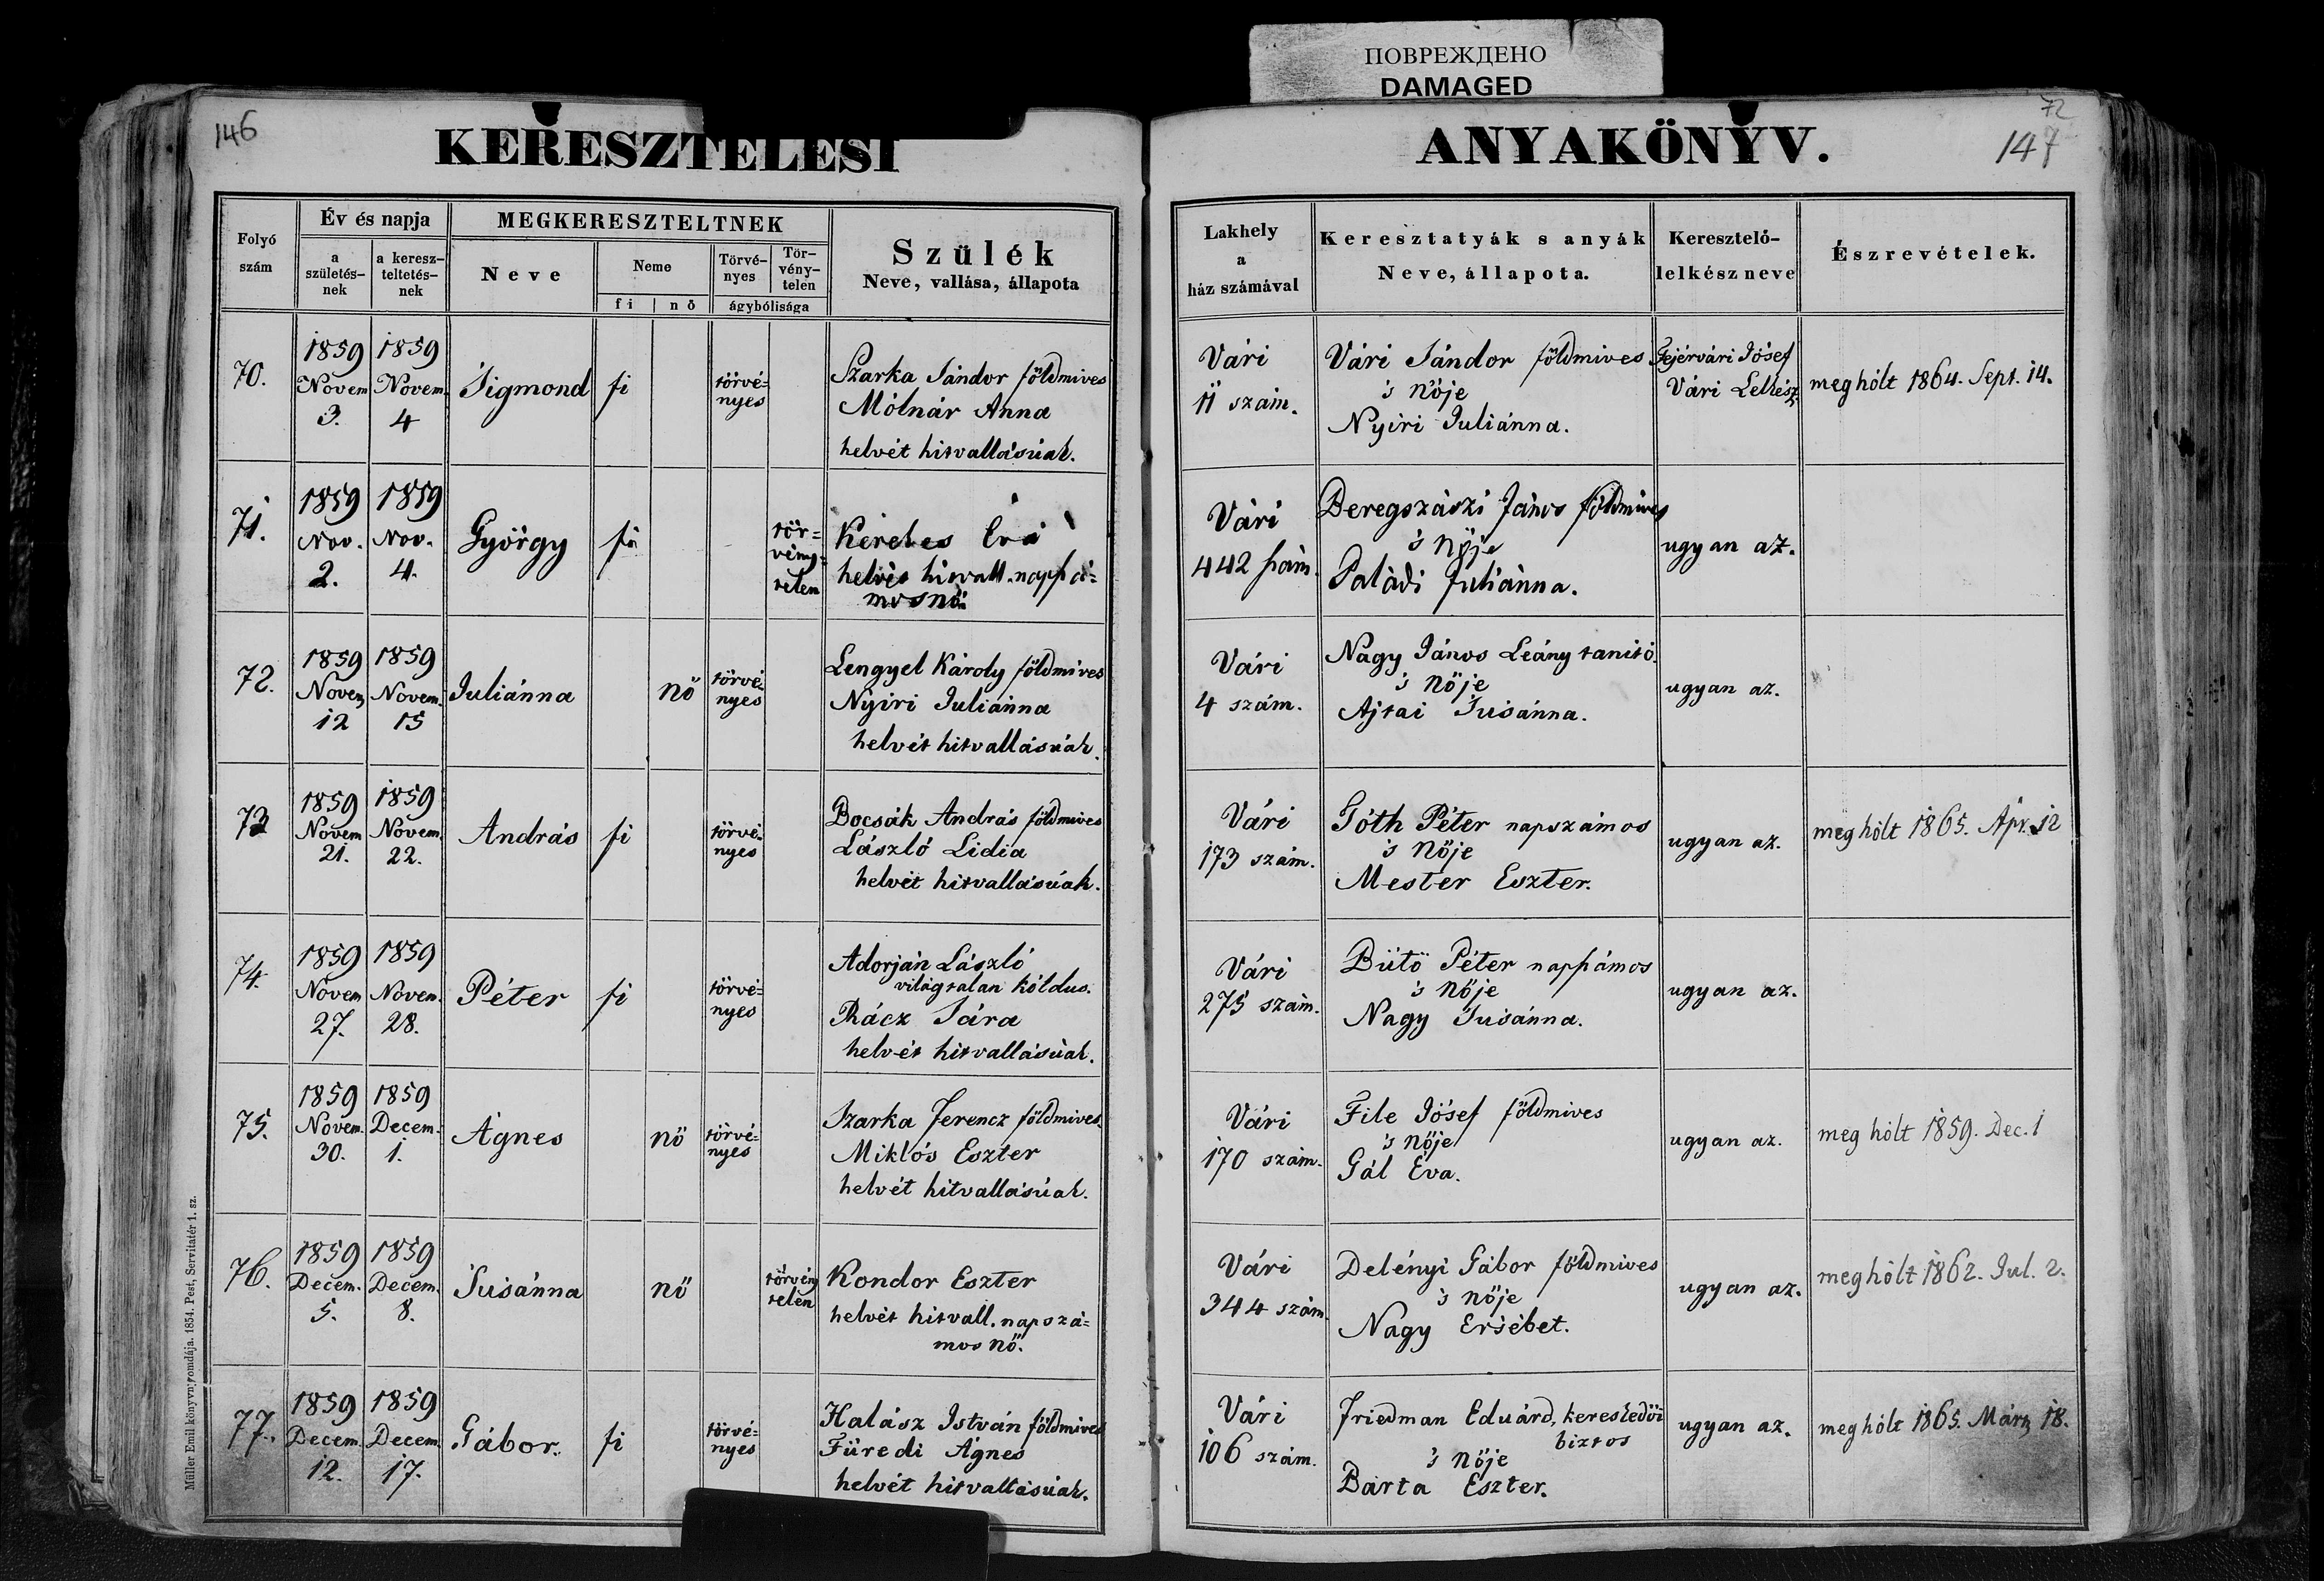 ПОВРЕЖДЕНО
DAMAGED
146
72
147
KERESZTELESI ANYAKÖNYV.
Folyó szám
Év és napja
a születés-nek
a keresz-teltetés-nek
MEGKERESZTELTNEK
Neve
Neme
fi | nő
Törvé-nyes
Tör-vény-telen
ágybólisága
Szülék
Neve, vallása, állapota
Lakhely
a
ház számával
Keresztatyák s anyák
Neve, állapota.
Keresztelő-
lelkész neve
Észrevételek.
70.
1859 Novem 3.
1859 Novem. 4
Sigmond
fi
törvé=
nyes
Szarka Sándor földmives
Mólnár Anna
helvét hitvallásúak.
Vári
11 szám.
Vári Sándor földmives
's nöje
Nyiri Juliánna.
Fejérvári Jósef
Vári Lelkész
meghólt 1864. Sept. 14.
71.
1859 Nov. 2.
1859 Nov. 4.
György
fi
tör=
vény=
telen
Kerekes Éva
helvét hitvall. napszá=
mosnö
Vári
442 szám.
Beregszászi János földmives
's nöje
Paládi Juliánna.
ugyan az.
72.
1859 Novem 12
1859 Novem. 15
Juliánna
nö
törvé=
nyes
Lengyel Károly földmives
Nyiri Juliánna
helvét hitvallásúak.
Vári
4 szám.
Nagy János Leány tanitó.
's nöje
Ajtai Susánna.
ugyan az.
73
1859 Novem 21.
1859 Novem. 22.
András
fi
törvé=
nyes
Bocsák András földmives
László Lidia
helvét hitvallásúak.
Vári
173 szám.
Tóth Péter napszámos
's nöje
Mester Eszter.
ugyan az.
meghólt 1865. Apr. 12
74.
1859 Novem 27.
1859 Novem. 28.
Péter
fi
törvé=
nyes
Adorján László
világtalan kóldus.
Rácz Sára
helvét hitvallásúak.
Vári
275 szám.
Bütö Péter napszámos
's nöje
Nagy Susánna.
ugyan az.
75.
1859 Novem. 30.
1859 Decem. 1.
Ágnes
nö
törvé=
nyes
Szarka Ferencz földmives.
Miklós Eszter
helvét hitvallásúak.
Vári
170 szám.
File Jósef földmives
's nöje
Gál Éva.
ugyan az.
meg hólt 1859. Dec. 1
76.
1859 Decem. 5.
1859 Decem. 8.
Susánna
nö
törvény
telen
Kondor Eszter
helvét hitvall. napszá=
mos nö.
Vári
344 szám.
Delényi Gábor földmives
's nöje
Nagy Ersébet.
ugyan az.
meghólt 1862. Jul. 2.
77.
1859 Decem. 12.
1859 Decem. 17.
Gábor.
fi
törvé=
nyes
Halász István földmives
Füredi Ágnes
helvét hitvallásúak.
Vári
106 szám.
Friedman Eduárd, kereskedöi
biztos
's nöje
Barta Eszter.
ugyan az.
meghólt 1865. Márz 18.
Müller Emil könyvnyomdája. 1854. Pest, Servitatér 1. sz.